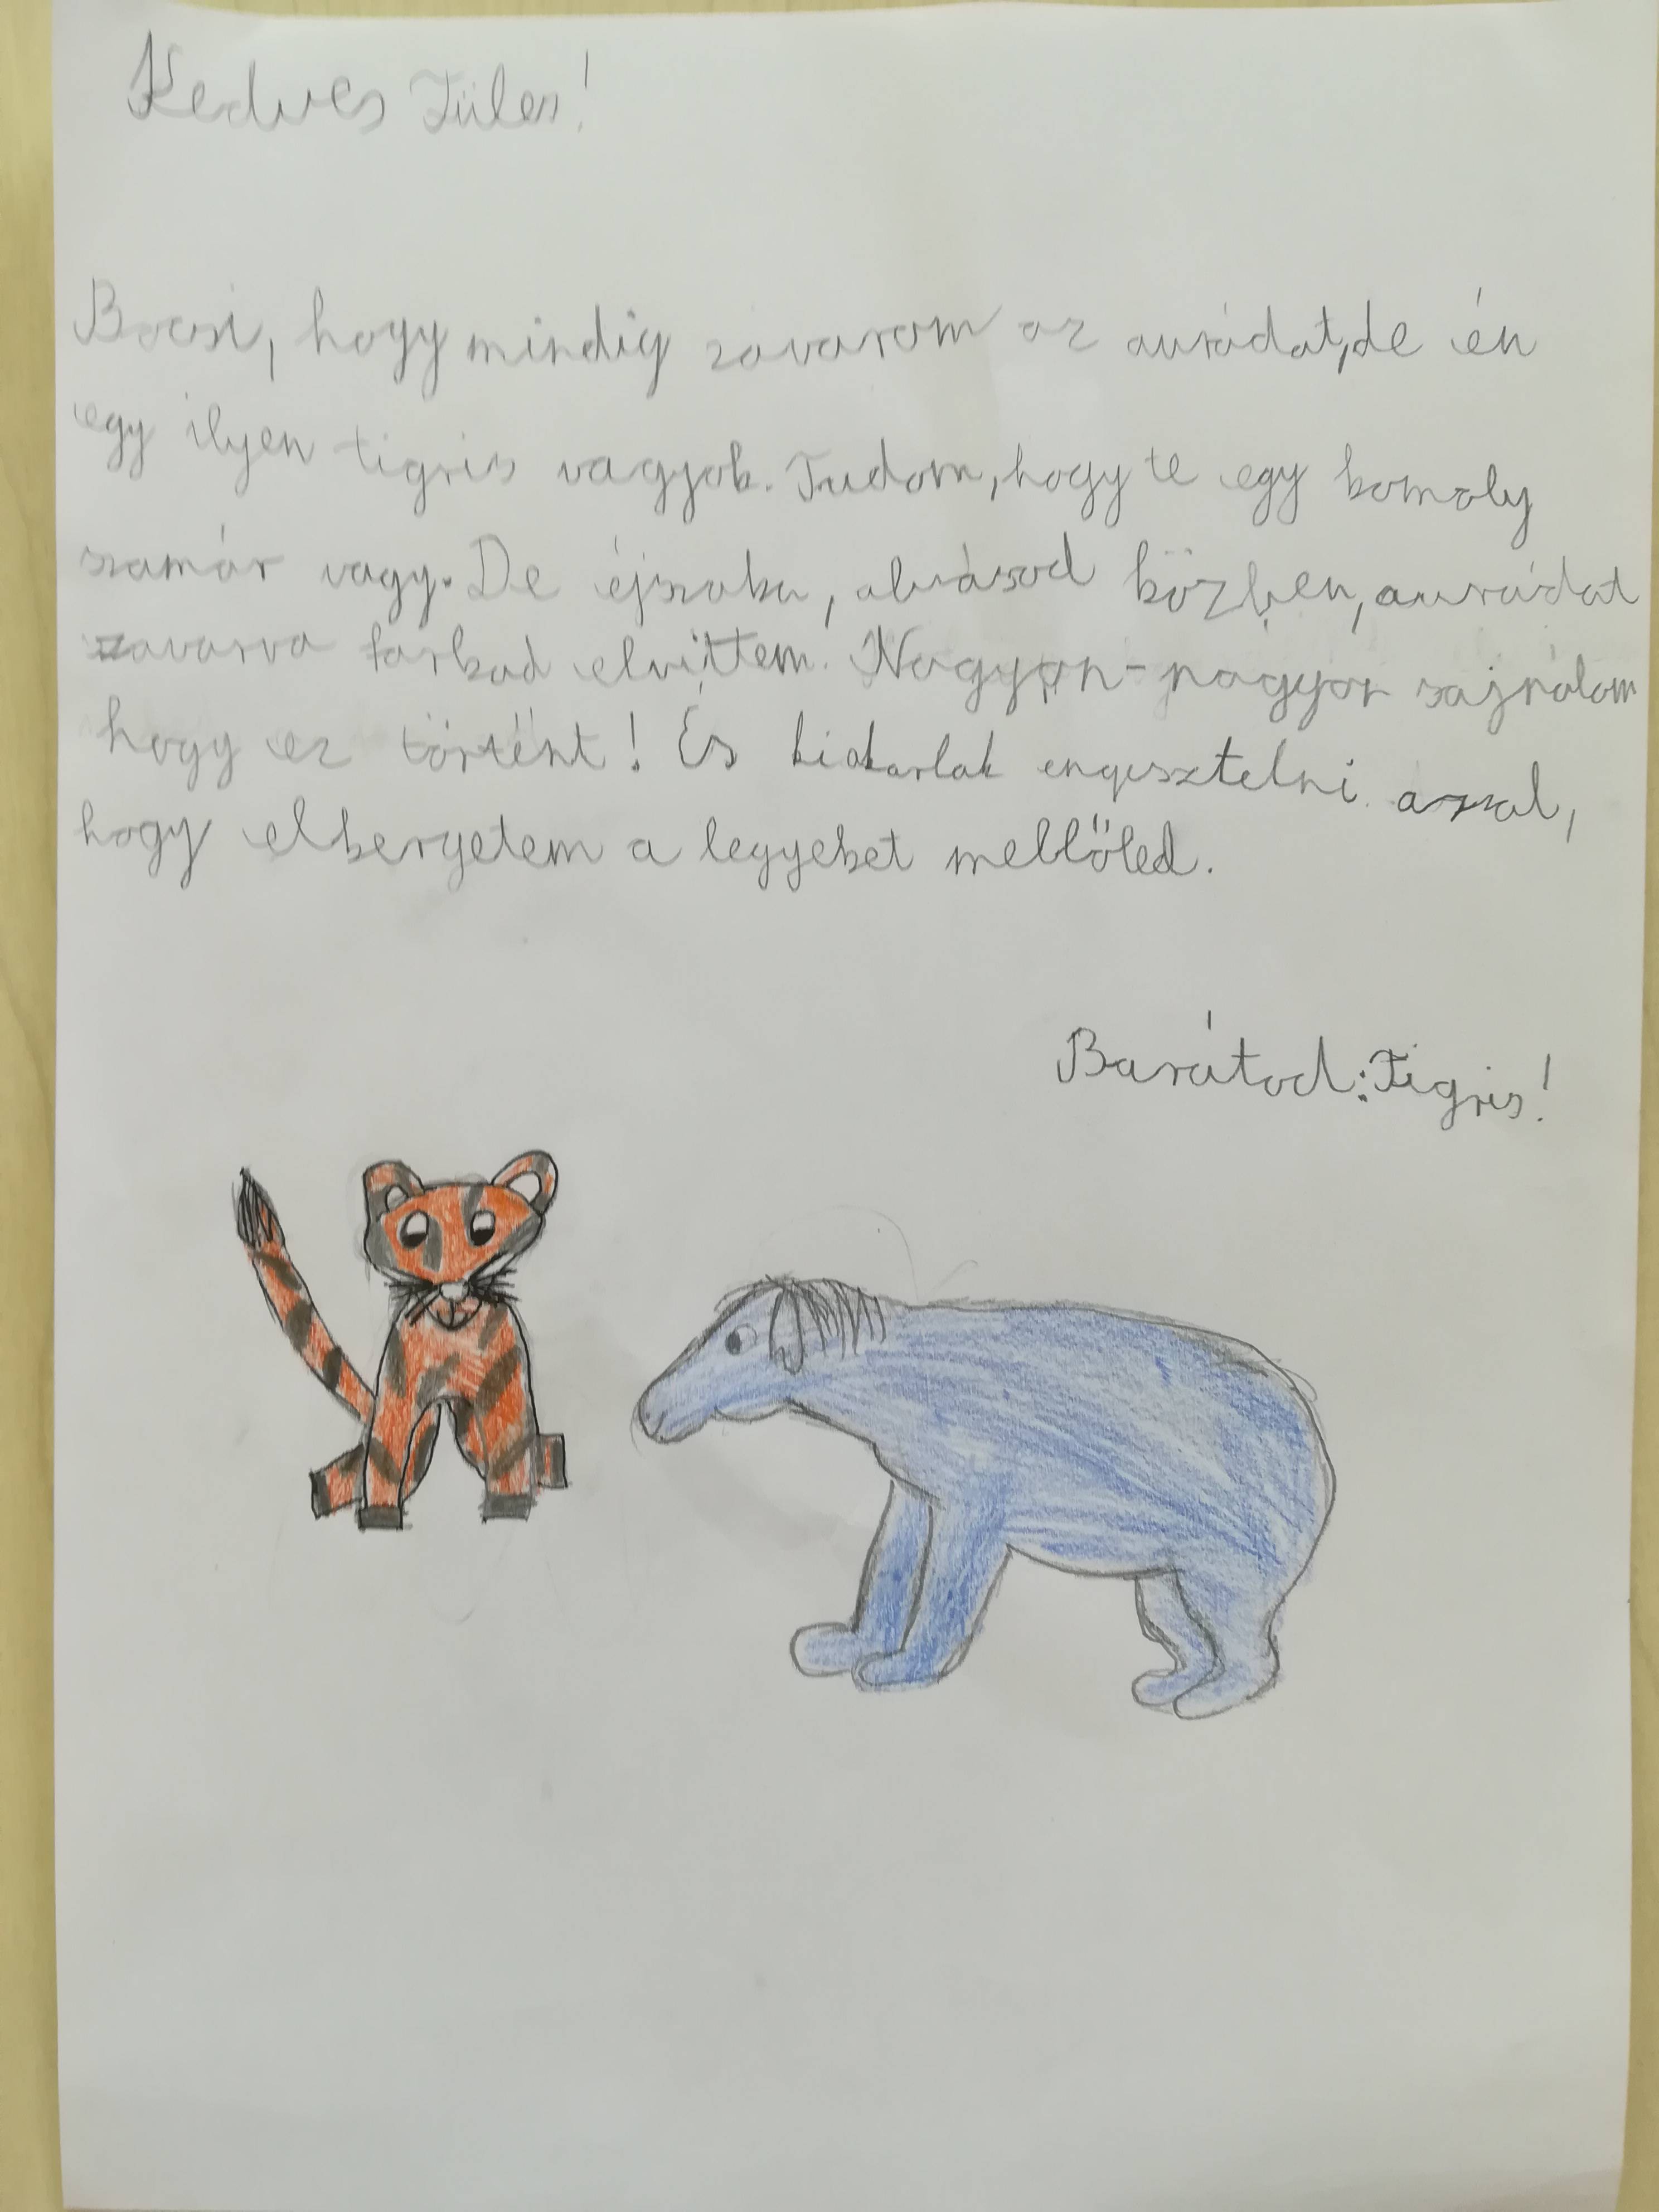 Kedves Füles!
Bocsi, hogy mindig zavarom az aurádat, de én
egy ilyen tigris vagyok. Tudom, hogy te egy komoly
szamár vagy. De éjszaka, alvásod közben, aurádat
zavarva farkad elvittem. Nagyon-nagyon sajnálom
hogy ez történt! És kiakarlak engesztelni azzal,
hogy elkergetem a legyeket mellőled.
Barátod: Tigris!